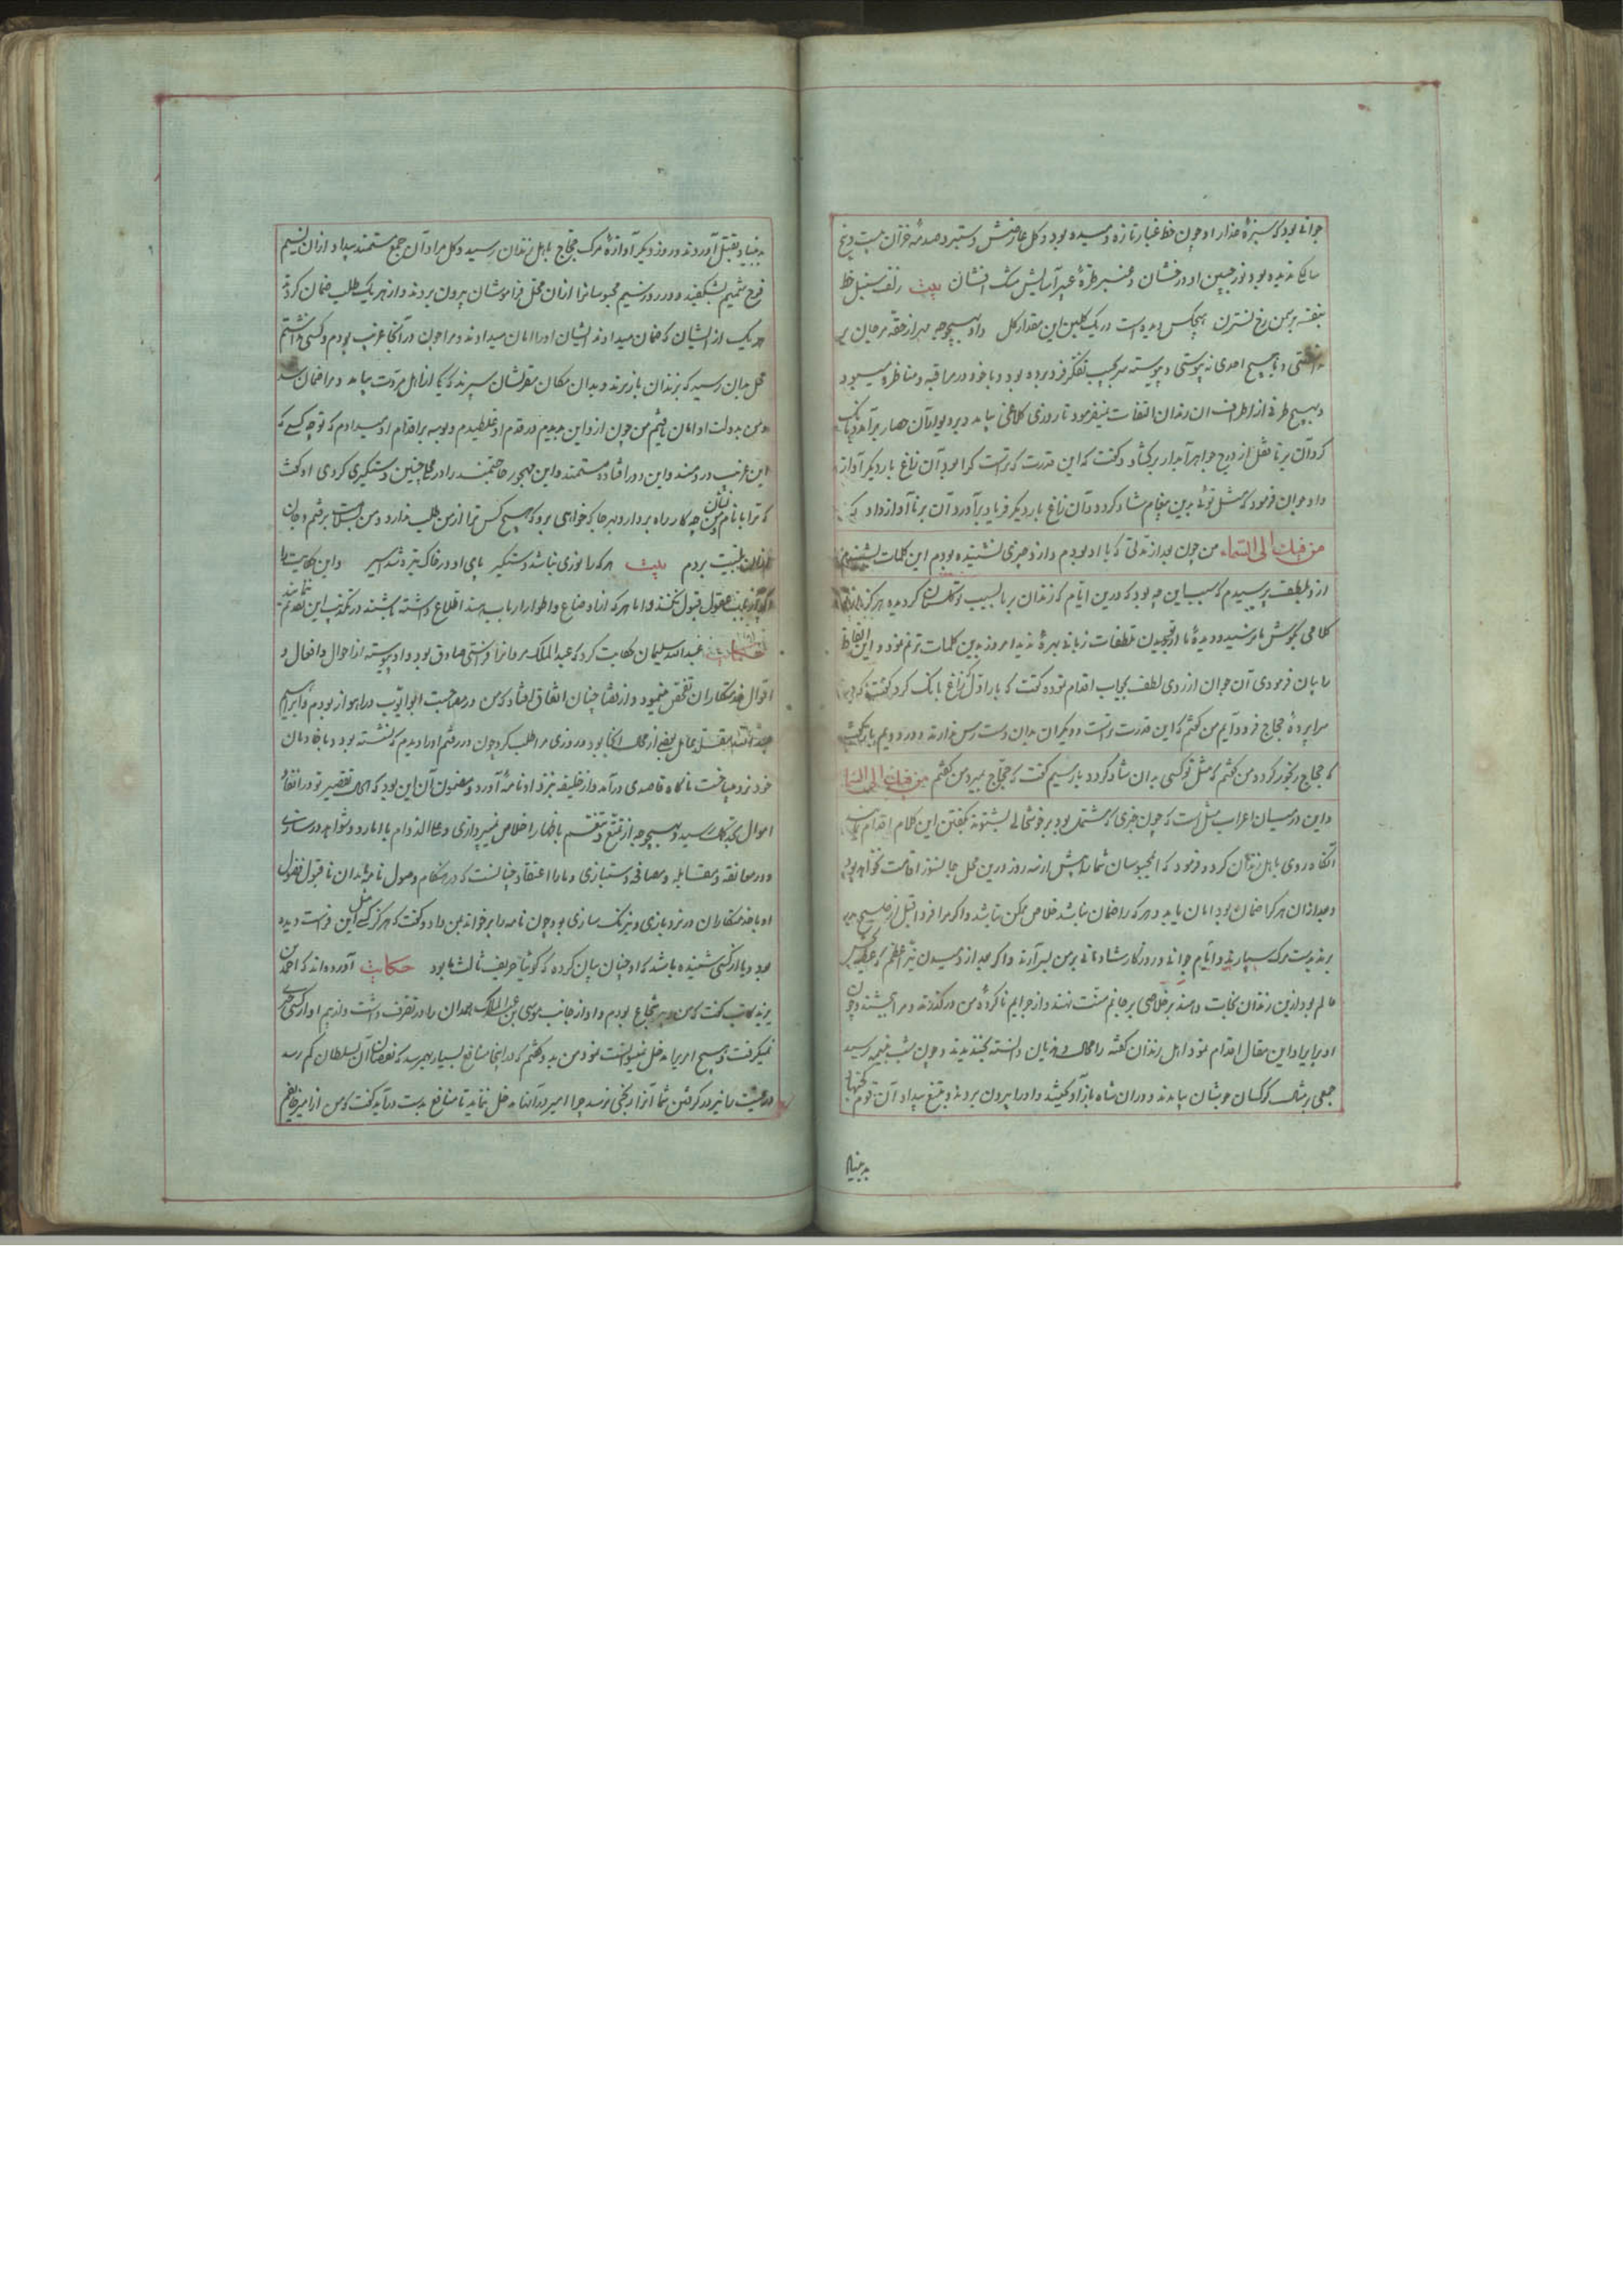 جوانی بود که سبزهٔ عذار او چون خط غبار تازه دمیده بود و گل عارضش دستبرد صدمهٔ خزان
ندیده بود نور جبین او درفشان و عنبر طرهٔ عبیر آسایش مشک افشان بیت زلف سنبل خط
بنفشه برسمن رخ نسترن هیچکس دیده است در یک گلبن این مقدار گل و او بهیچوجه مهر از حقه مرجان بر
و با هیچ احدی نه پیوستی و پیوسته سر بجیب تفکر فرو برده بود و با خود در مراقبه و مناظره میبود
و بهیچ طرفی از اطراف آن زندان التفات نمیفرمود تا روزی کلاغی بیامد و بر دیوار آن حصار برآمد و بانگ
کرد آن برنا قفل از درج جواهر آبدار برگشاد و گفت که این قدرت که تراست کرا بود آن زاغ بار دیگر آواز
داد جوان فرمود که مثل توئی بدین پیغام شاد گردد و آن زاغ بار دیگر فریاد برآورد آن برنا آواز داد که
من فیك الی السماء من چون بعد از مدتی که با او بودم و ازو چیزی نشنیده بودم این کلمات بشنیدم
از و بلطف پرسیدم که سبب این چه بود که درین ایام که زندان بر ما بسبب تو گلستان گردیده هرگز
کلامی بگوش ما نرسید و دیدهٔ ما از تو بجز تلطفات زبانی بهرهٔ ندید امروز بدین کلمات ترنم نمود و این الفاظ
را بیان فرمودی آن جوان از روی لطف بجواب اقدام نموده گفت که بار اول که زاغ بانگ کرد گفت که بر
سراپردهٔ حجاج فرود آیم من گفتم که این قدرت تراست و دیگران بدان دست رس ندارند و در دویم بار گفت
که حجاج رنجور گردد من گفتم که مثل تو کسی بدان شاد گردد بار سیم گفت که حجاج بمیرد من گفتم من فیك الی السماء
و این در میان اعراب مثل است که چون خبری که مشتمل بود بر خوشحالی بشنوند بگفتن این کلام اقدام نمایند
آنگاه روی باهل زندان کرد و فرمود که ای محبوسان شما را بیش از سه روز درین محل جانسوز اقامت نخواهد بود
و بعد از آن هر کرا ضمان بود امان یابد و هر که را ضمان نباشد خلاص ممکن نباشد و اگر مرا فردا قبل از صبح
برند بدست مرگ سپارند و ایام جوانی و روزگار شادمانی بر من بسر آرند و اگر بعد از دمیدن نیر اعظم که
عالم بود ازین زندان نجات دهند بر خلاصی بر جانم منت نهند و از جرایم ناکردهٔ من درگذرند و مرا ببخشند و چون
او بر ایراد این مقال اقدام نمود اهل زندان گفته را محال و هذیان دانسته بخندیدند و چون شب بنیمه رسید
جمعی بشکل کرکسان موبشان بیامدند و در آن شاه باز آویختند و او را بیرون بردند و بتیغ بیداد آن قوم
بد بنیاد
بد بنیاد بقتل آوردند و روز دیگر آوازهٔ مرگ حجاج باهل زندان رسید و گل مراد آن جمع مستمند بیداد از آن نسیم
فرح شمیم بشگفید و در روز سیم محبوسانرا از آن محل فراموشان بیرون بردند و از هر یک طلب ضمان کردند
هر یک از ایشان که ضمان میدادند ایشان او را امان میدادند و مرا چون در آنجا غریب بودم و کسی نداشتم
محل بدان رسید که بزندان باز برند و بدان مکان مقر نشان سپرند که یکی از اهل مروت بیامد و مرا ضمان شد
و من بدولت او امان یافتم من چون ازو این بدیدم در قدم او غلطیدم و بوسه بر اقدام او میدادم که تو چه کسی که
این غریب دردمند و این دور افتاده مستمند و این مهجور حاجتمند را در محل چنین دستگیری کردی او گفت
که ترا با نام و نشان من چه کار راه بردار و بهر جا که خواهی برو که هیچ کس ترا از من طلب ندارد و من بسلامت برفتم و جان
از آن بلیت بردم بیت هر که را نوری نباشد دستگیر پای او در خاک تیره شد اسیر و این حکایت را
اگر چه بعضی عقول قبول نکنند و اما هر که از اوضاع و اطوار ارباب هند اطلاع داشته باشند در تکذیب این تقدیم ننمایند
حکایت عبدالله سلیمان حکایت کرد که عبدالملک مروانرا فرستی صادق بود و او پیوسته از احوال و افعال و
اقوال خدمتکاران تفحص مینمود و از قضا چنان اتفاق افتاد که من در مصاحبت ابو ایوب در اهواز بودم و ابراهیم
عبدالله متقلد بعمل بعضی از محال آنجا بود و روزی مرا طلب کرد چون در رفتم او را دیدم که نشسته بود و با خادمان
خود نرد میباخت ناگاه قاصدی درآمد و از خلیفه نزد او نامهٔ آورد و مضمون آن این بود که تقصیر تو در انفاذ
اموال بحد کمال رسید و بهیچوجه از تتبع و تقسم باظهار اخلاص نمیپردازی و علی الدوام با امارد و شواهد در سازی
و در معانقه و مقابله و مصافحه دستبازی و ما را اعتقاد چنانست که در هنگام وصول نامه بدان ناقبول فضول
او با خدمتکاران در نرد بازی و نیرنگ سازی بود چون نامه را بر خواند بمن داد و گفت که هرگز کسی مثل این فراست دیده
بود و یا از کسی شنیده باشد که او چنان بیان کرده که گوئیا حریف ثالث ما بود حکایت آورده اند که احمد بن
یزید کاتب گفت که من دبیر شجاع بودم و او از جانب موسی بن عبدالملک همدان را در تصرف داشت و از بیم او از کسی چیزی
نمیگرفت و بهیچ امر پر مدخل نمیتوانست نمود من بدو گفتم که در اینجا منافع بسیار بهم رسد که نقصان آن بسلطان کم رسد
و رعیت را نیز در گرفتن شما آزار بکنی نرسد چرا امیر در آنها مدخل ننماید تا منافع بدست درآید گفت که من از امیر خایفم